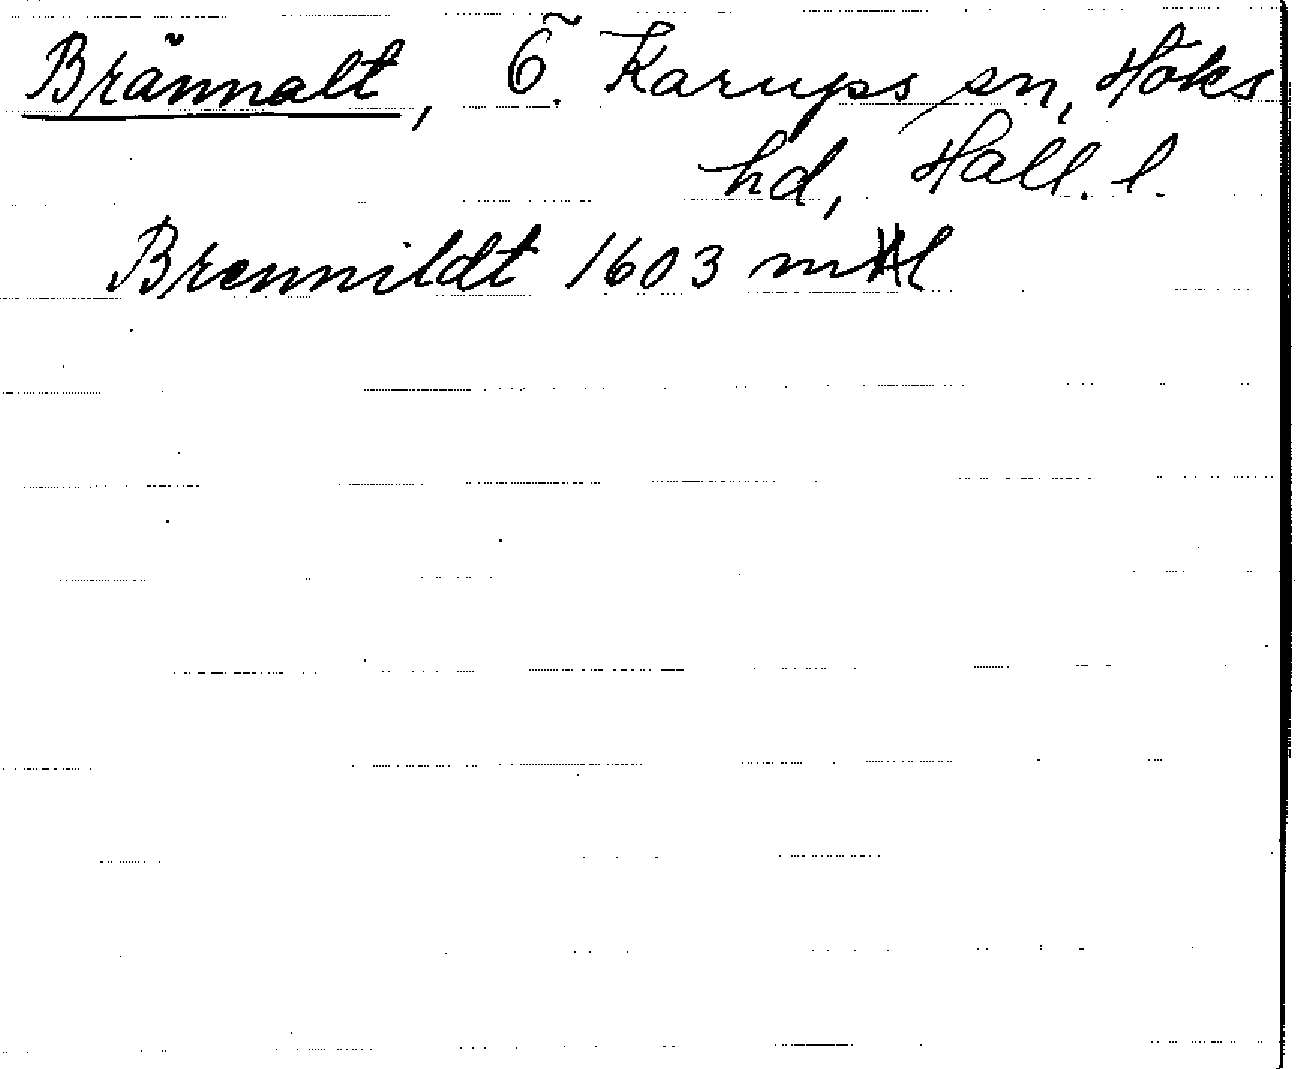 Brännalt, Ö. Karups sn, Höks
hd, Hall. l.
Brennildt 1603